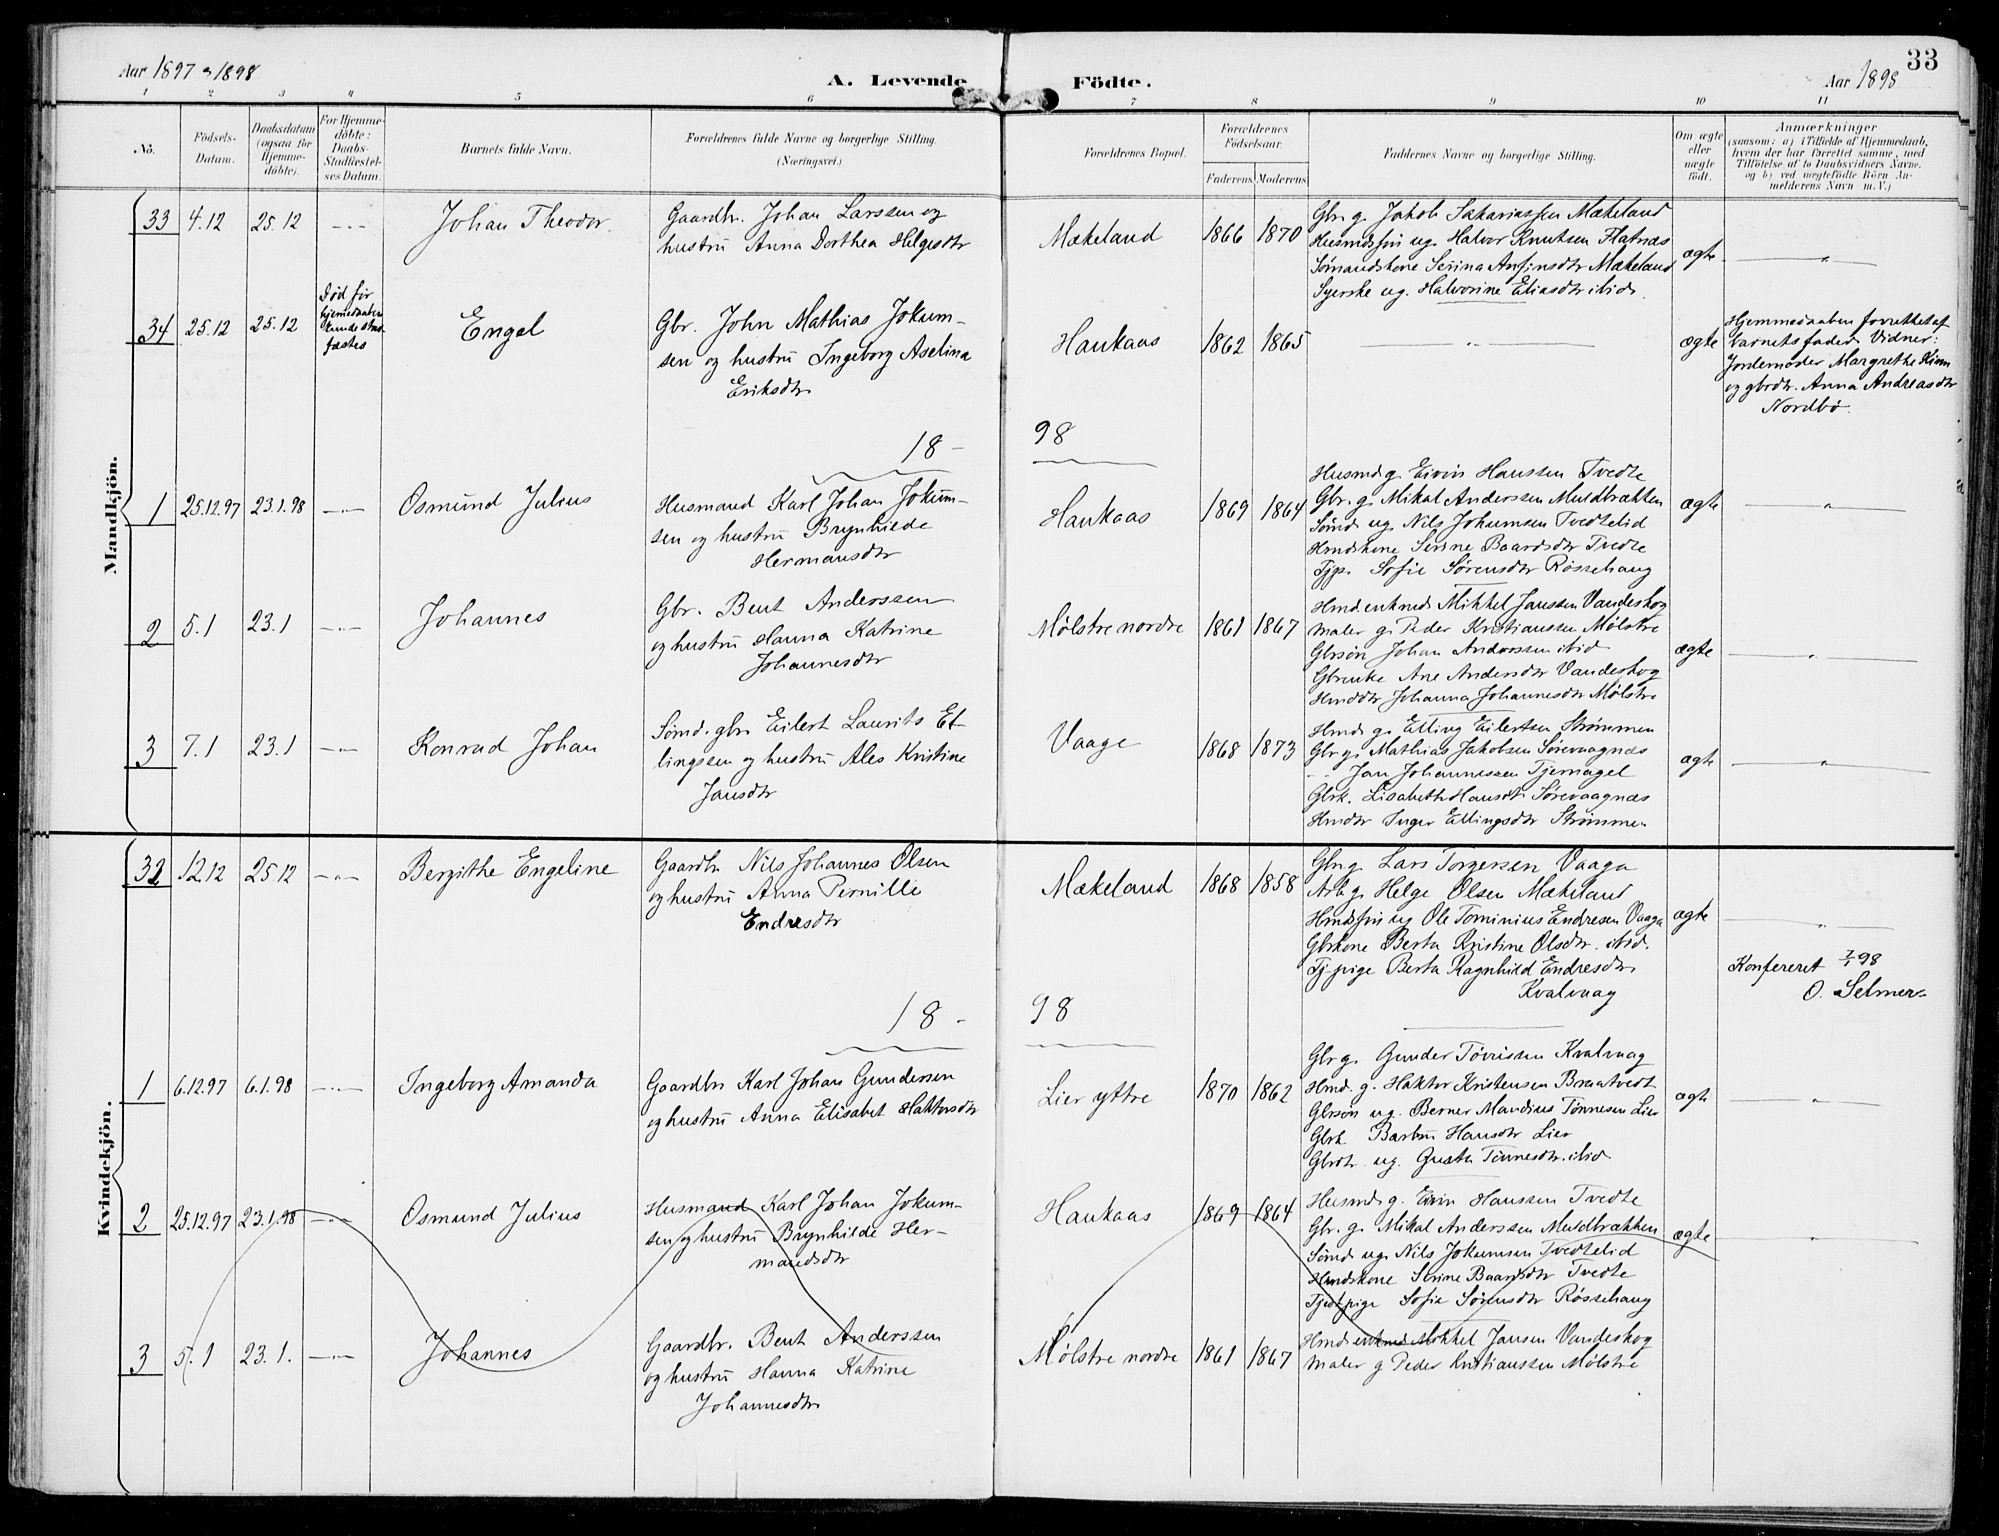 33
Aar 1897 & 1898
A. Levende
Födte.
Aar 1898
1 2 3 4 5 6 7 8 9 10 11
No.
Födsels-
Datum.
Daabsdatum
(ogsaa for
Hjemme-
döbte).
For Hjemme-
döbte:
Daabs-
Stadfæstel-
ses Datum.
Barnets fulde Navn.
Forældrenes fulde Navne og borgerlige Stilling.
(Næringsvei.)
Forældrenes Bopæl.
Forældrenes
Födselsaar.
Faderens. Moderens.
Faddernes Navne og borgerlige Stilling.
Om ægte
eller
uægte
födt.
Anmærkninger
(saasom: a) i Tilfælde af Hjemmedaab,
hvem der har forrettet samme, med
Tilföielse af to Daabsvidners Navne.
og b) ved uægtefödte Börn An-
melderens Navn m. V.)
Mandkjön.
33 4.12 25.12 -"- Johan Theodor.
Gaardbr. Johan Larssen og
hustru Anna Dorthea Helgesdtr
Mækeland 1866 1870
Gbr. g. Jakob Sakariassen Mækeland
Husmdsfni ug. Halvor Knutsen Flatnæs
Sømandskone Serina Anfinsdtr Mækeland
Syerske ug. Halvorine Eliasdtr ibid.
ægte "
34 25.12 25.12
Død før
hjemedaaben
kunde stad-
fæstes
Engel
Gbr. John Mathias Jokum-
sen og hustru Ingeborg Aselina
Eriksdtr
Haukaas 1862 1865 " ægte
Hjemmedaaben forrettet af
barnets fader. Vidner:
Jordemoder Margrethe Kinn
og gbrdtr. Anna Andreasdtr
Nordbø.
18-98
1 25.12.97 23.1.98 -"- Osmund Julius
Husmand Karl Johan Jokum-
sen og hustru Brynhilde
Hermansdtr
Haukaas 1869 1864
Husmd g. Eivin Hanssen Tvedte
Gbr. g. Mikal Anderssen Muldbrækken
Sømd ug. Nils Johumsen Tvedtelid
Hmdskone Serine Baardsdtr Tvedte
Tjp. Sofie Sørensdtr Røssehaug
ægte "
2 5.1 23.1 -"- Johannes
Gbr. Bent Anderssen
og hustru Hanna Katrine
Johannesdtr
Mølstre nordre 1861 1867
Hmd. enkmd Mikkel Janssen Vandeskog
Maler g. Peder Kristianssen Mølstre
Gbrsøn Johan Anderssen ibid
Gbrenke Ane Andersdtr Vandeskog
Hmddtr Johanna Johannesdtr Mølstre
ægte "
3 7.1 23.1 -"- Konrad Johan
Sømd. gbr. Eilert Laurits El-
lingsen og hustru Ales Kristine
Jansdtr
Vaage 1868 1873
Hmd g. Elling Eilertsen Strømmen
Gbr g. Mathias Jakobsen Sørevaagnæs
-"- Jan Johannessen Tjernagel
Gbrk. Lisabeth Hansdtr Sørevaagnæs
Hmdtr Inger Ellingsdtr Strømmen
ægte "
Kvindekjön.
32 12.12 25.12 -"- Bergithe Engeline
Gaardbr Nils Johannes Olsen
og hustru Anna Pernille
Endresdtr
Mækeland 1868 1858
Gbr g. Lars Torgersen Vaaga
Arb g. Helge Olsen Mækeland
Hmdsfni ug Ole Tominius Endresen Vaaga
Gbrkone Berta Kristine Olsdtr. ibid.
Tj. pige Berta Ragnhild Endresdtr
Kvalvaag
ægte "
Konfereret 7/1 98
O. Selmer
18-98
1 6.12.97 6.1.98 -"- Ingeborg Amanda
Gaardbr Karl Johan Gundersen
og hustru Anna Elisabet Haktorsdtr
Lier yttre 1870 1862
Gbr g. Gunder Tørrissen Kvalvaag
Hmd. g. Haktor Kristensen Braatvedt
Gbrsøn ug. Berner Mandius Tønnesen Lier
Gbrk Barbru Hansdtr Lier
Gbrdtr. ug. Gusta Tønnesdtr. ibid
ægte "
2 25.12.97 23.1.98 -"- Osmund Julius
Husmand Karl Johan Jokum-
sen og hustru Brynhilde Her-
mandsdtr
Haukaas 1869 1864
Husmd g. Eivin Hanssen Tvedte
Gbr. g. Mikal Anderssen Muldbrækken
Sømd ug. Nils Jokumsen Tvedtelid
Hmdskone Serine Baardsdtr Tvedte
Tjedpige Sofie Sørensdtr Røssehaug
ægte "
3 5.1 23.1. -"- Johannes
Gaardbr. Bent Anderssen
og hustru Hanna Katrine
Johannesdtr
Mølstre nordre 1861 1867
Hmd enkmd Mikkel Jansen Vandeskog
Maler g Peder Kristianssen Mølstre